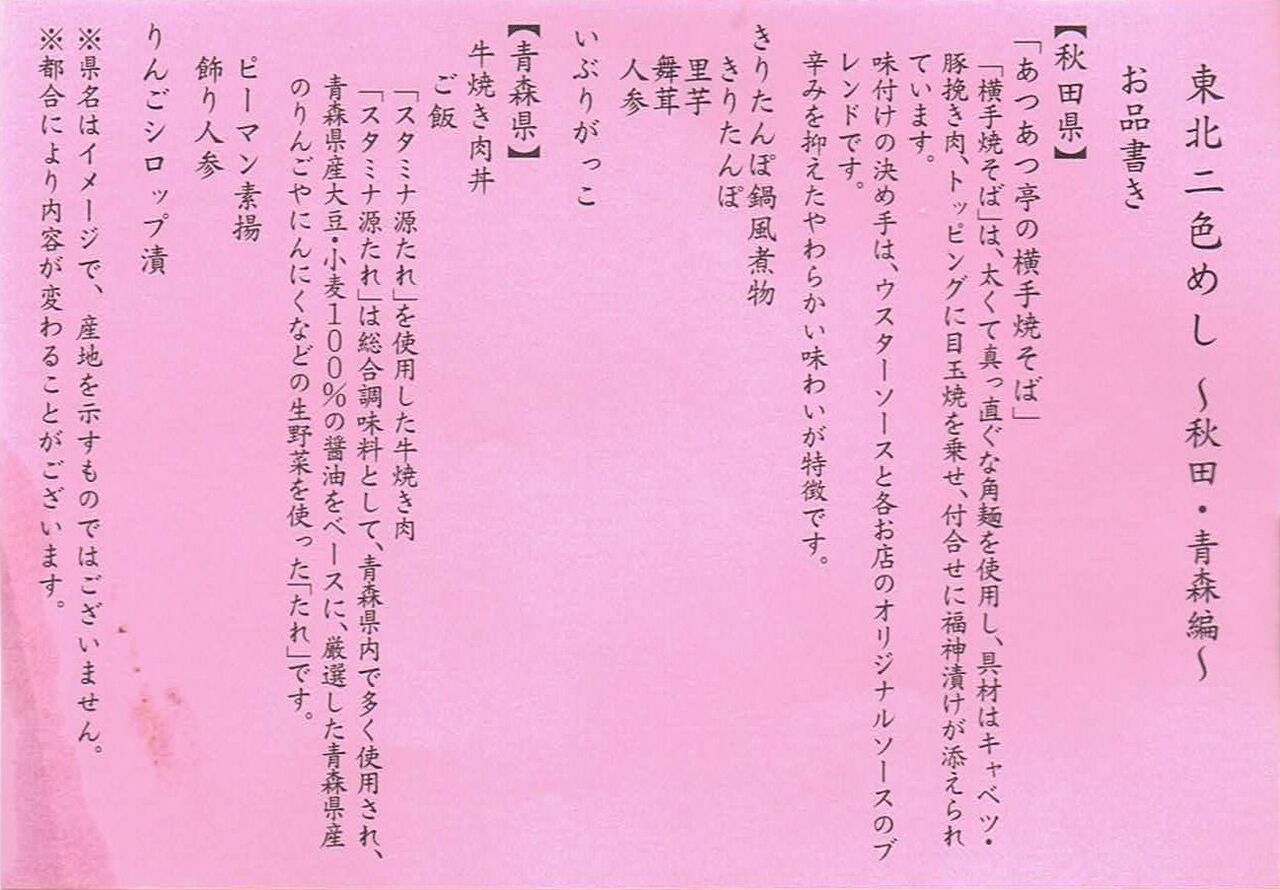 東北二色めし ～秋田・青森編～
お品書き
【秋田県】
「あつあつ亭の横手焼そば」
「横手焼そば」は、太くて真っ直ぐな角麺を使用し、具材はキャベツ・
豚挽き肉、トッピングに目玉焼を乗せ、付合せに福神漬けが添えられ
ています。
味付けの決め手は、ウスターソースと各お店のオリジナルソースのブ
レンドです。
辛みを抑えたやわらかい味わいが特徴です。
きりたんぽ鍋風煮物
きりたんぽ
里芋
舞茸
人参
いぶりがっこ
【青森県】
牛焼き肉丼
ご飯
「スタミナ源たれ」を使用した牛焼き肉
「スタミナ源たれ」は総合調味料として、青森県内で多く使用され、
青森県産大豆・小麦１００％の醤油をベースに、厳選した青森県産
のりんごやにんにくなどの生野菜を使った「たれ」です。
ピーマン素揚
飾り人参
りんごシロップ漬
※県名はイメージで、産地を示すものではございません。
※都合により内容が変わることがございます。